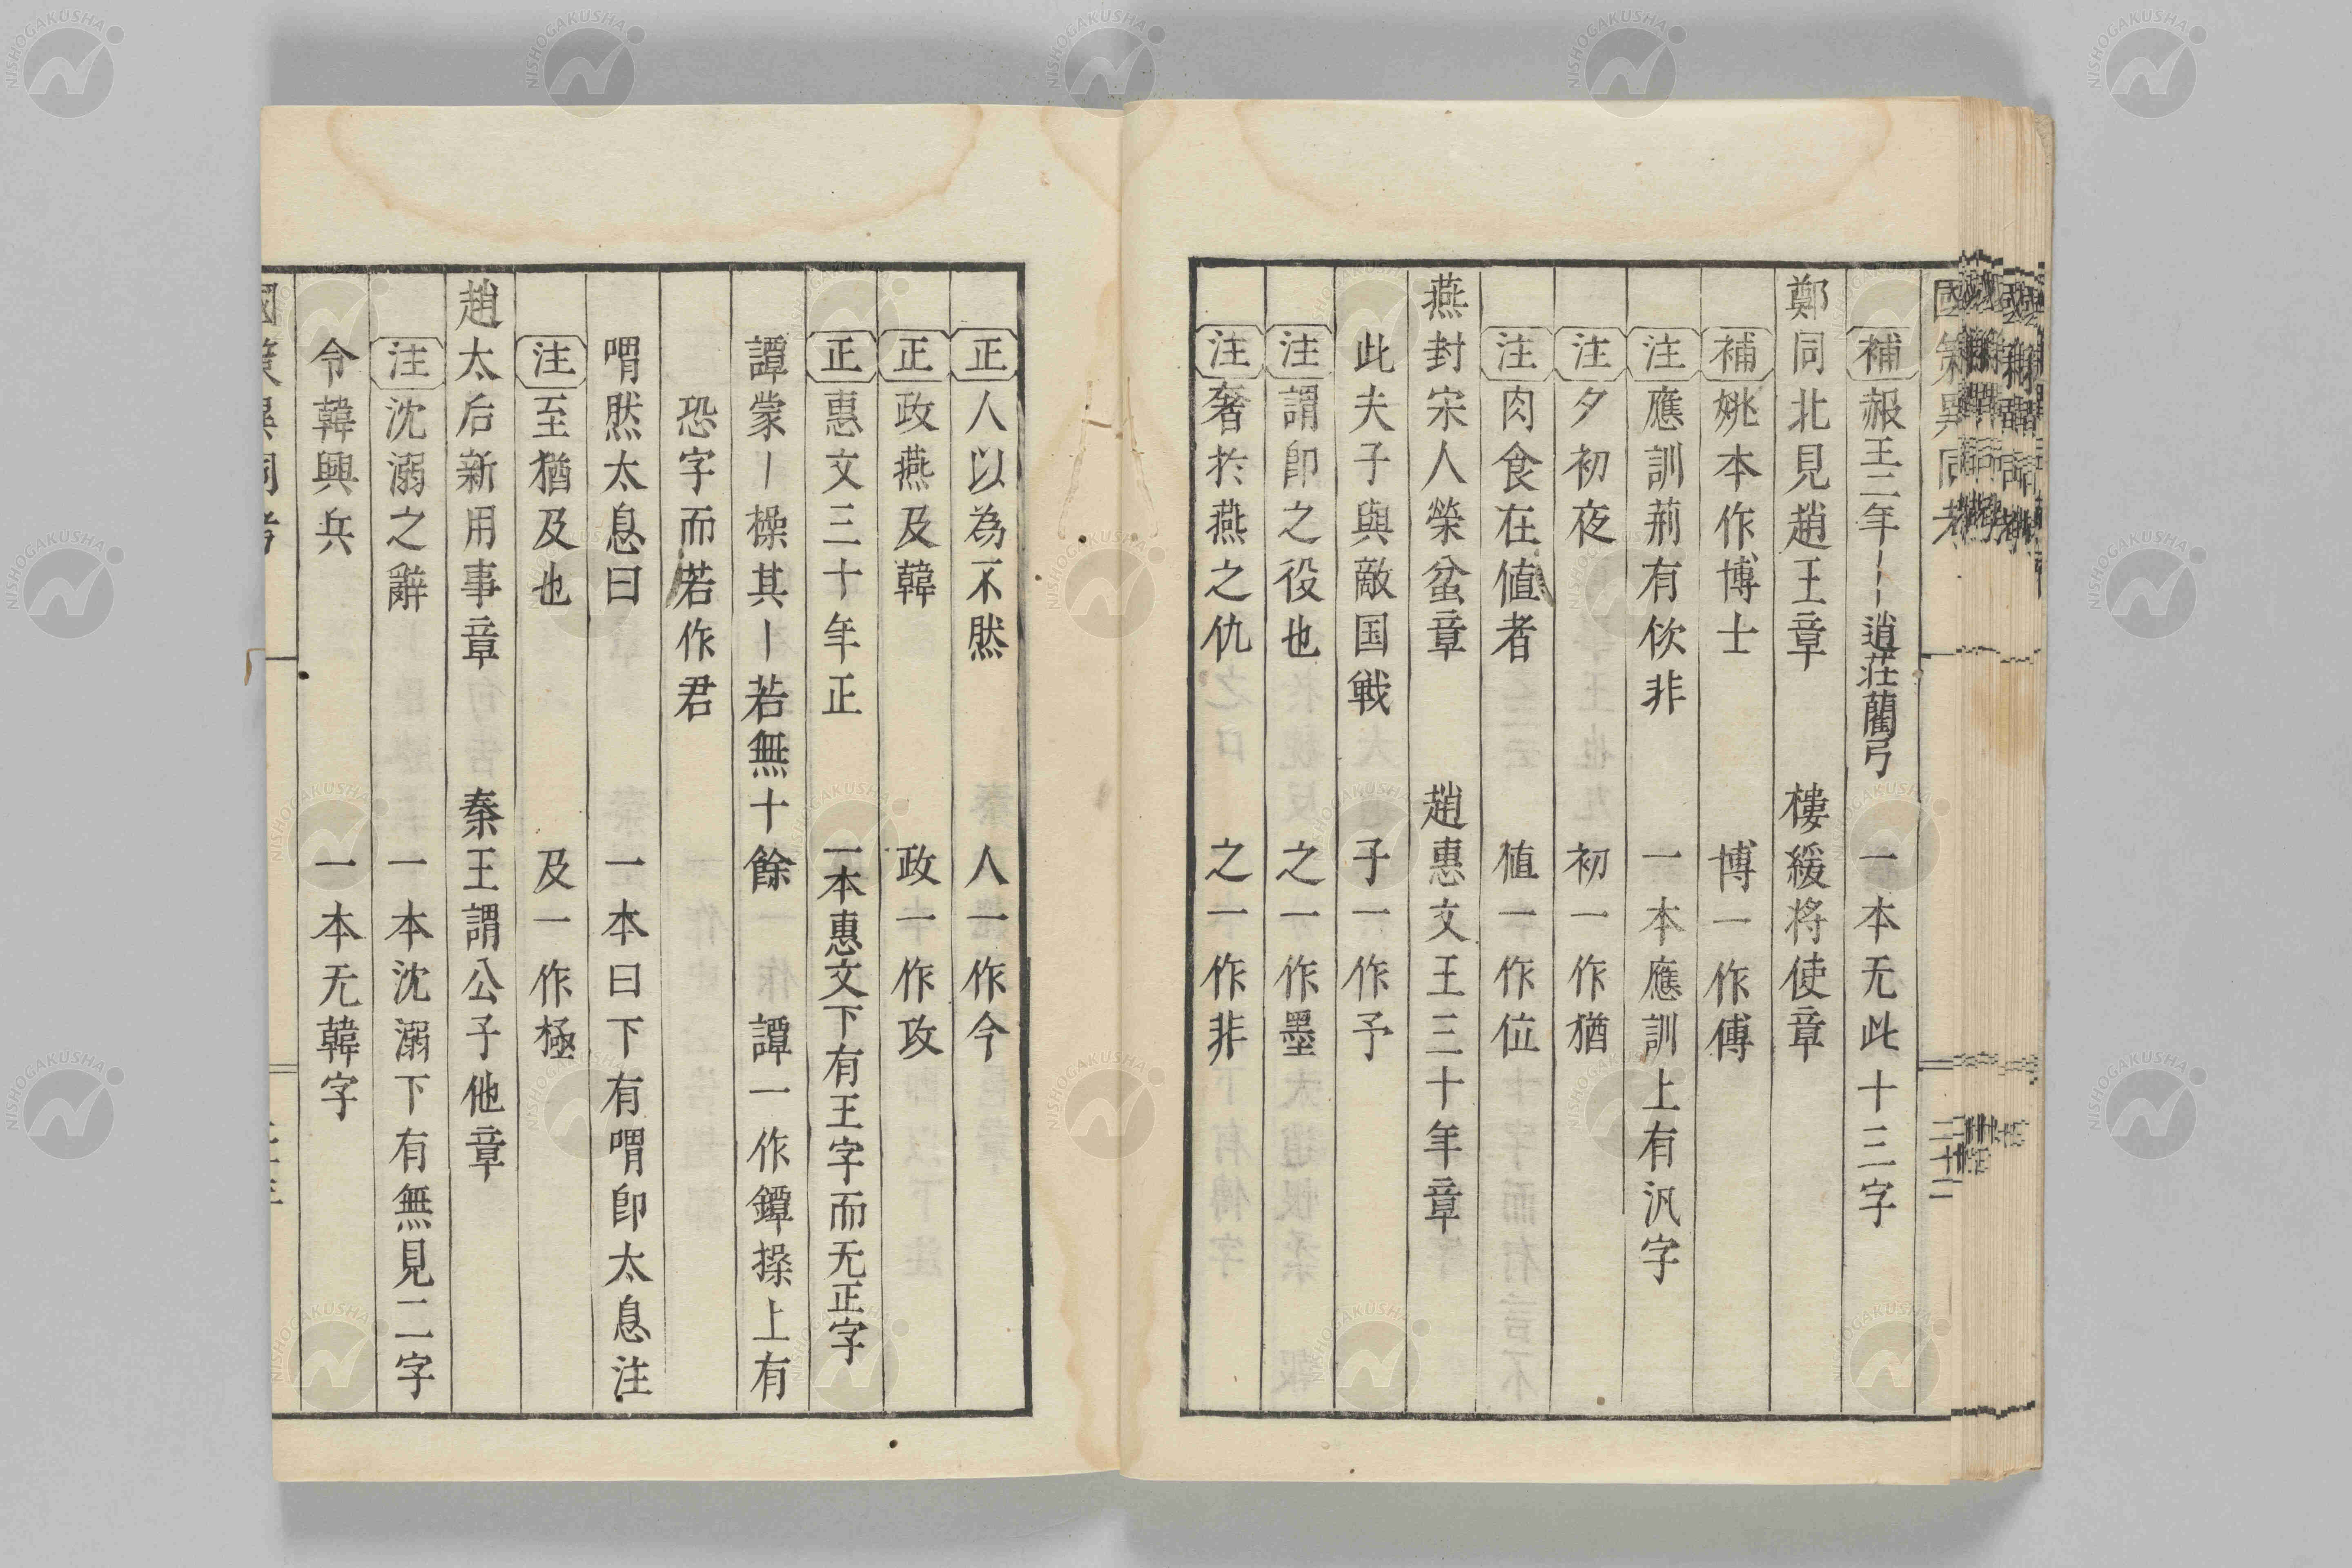 補 赧王二年〡〡逍莊藺弓 一本无此十三字
鄭同北見趙王章 樓緩将使章
補 姚本作博士 博一作傅
注 應訓荊有佽非 一本應訓上有汎字
注 夕初夜 初一作猶
注 肉食在値者 植一作位
燕封宋人榮蚠章 趙惠文王三十年章
此夫子與敵国戦 子一作予
注 謂卽之役也 之一作墨
注 奢於燕之仇 之一作非
國策異同考
正 人以為不然 人一作今
正 政燕及韓 政一作攻
正 惠文三十年正 一本惠文下有王字而无正字
譚蒙〡操其〡若無十餘 譚一作鐔操上有
恐字而若作君
喟然太息曰 一本曰下有喟卽太息注
注 至猶及也 及一作極
趙太后新用事章 秦王謂公子他章
注 沈溺之辭 一本沈溺下有無見二字
令韓興兵 一本无韓字
NISHOGAKUSHA